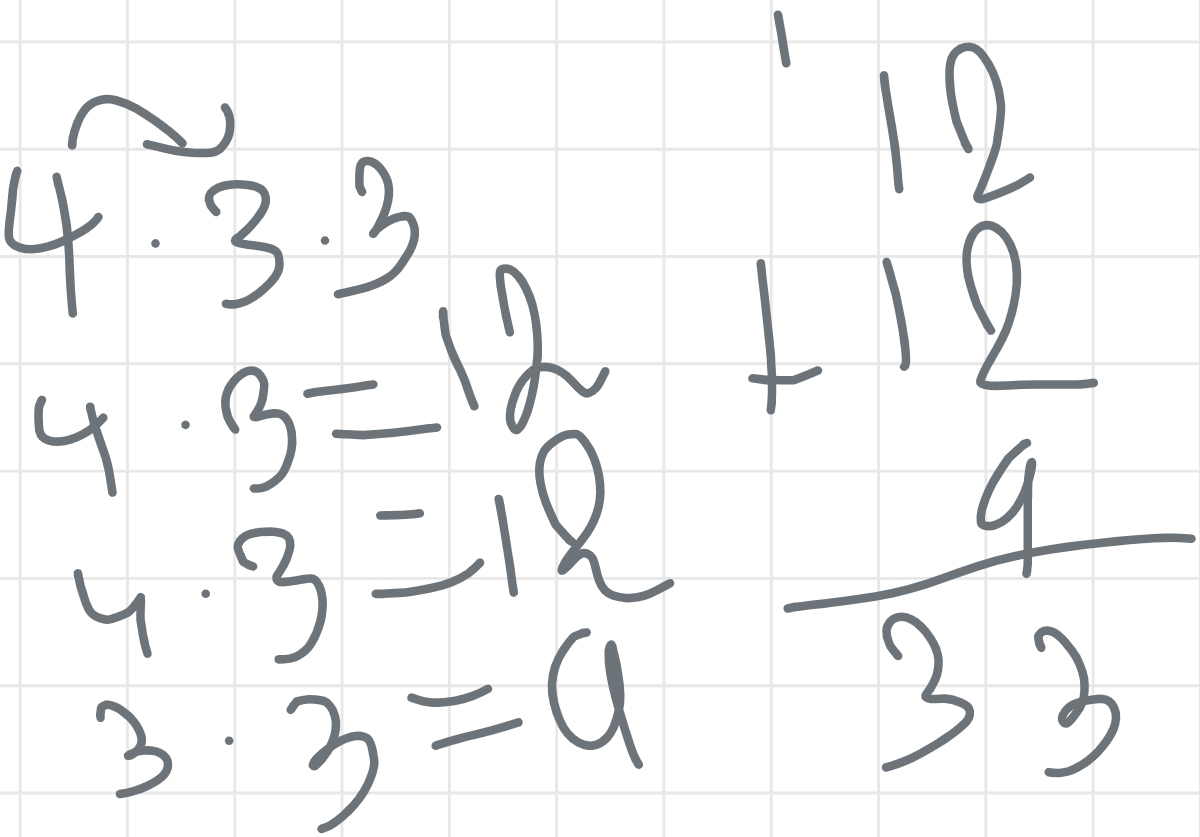 4 · 3 · 3
4 · 3 = 12
4 · 3 = 12
3 · 3 = 9
1
12
+ 12
9
33